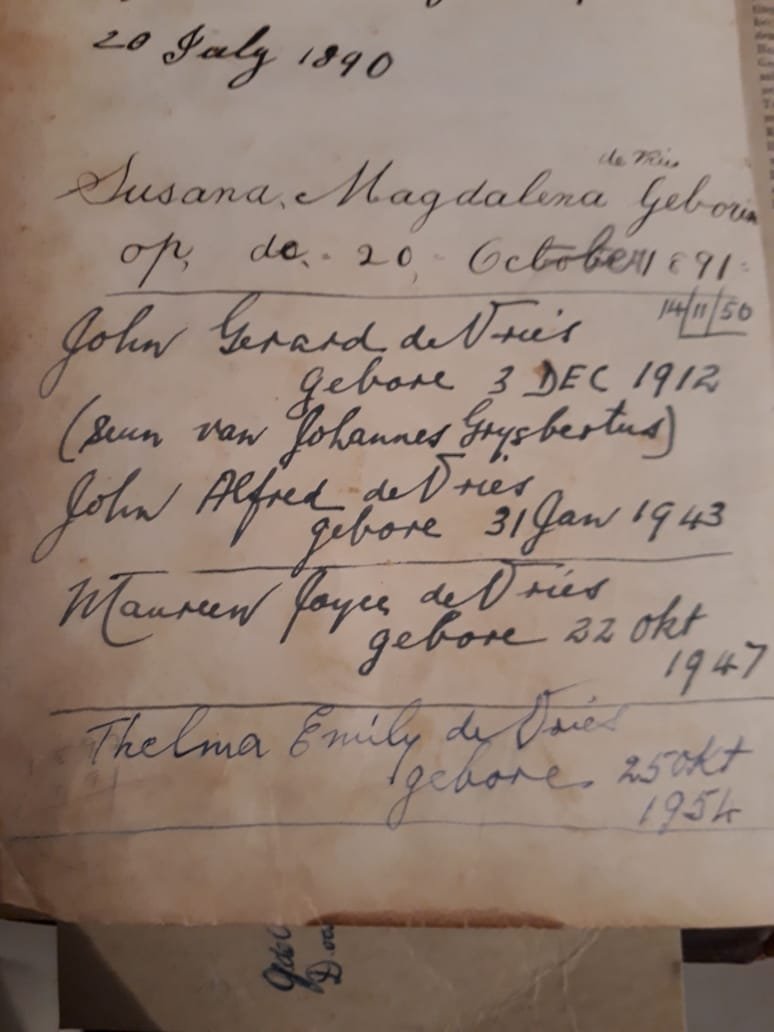 20 July 1890
de Vries
Susana, Magdalena Geboren
op, de. 20, October 1891
14/11/50
John Gerard de Vries
gebore 3 DEC 1912
(seun van Johannes Grysbertus)
John Alfred de Vries
gebore 31 Jan 1943
Maureen Joyce de Vries
gebore 22 Okt
1947
Thelma Emily de Vries
gebore 25 Okt
1954